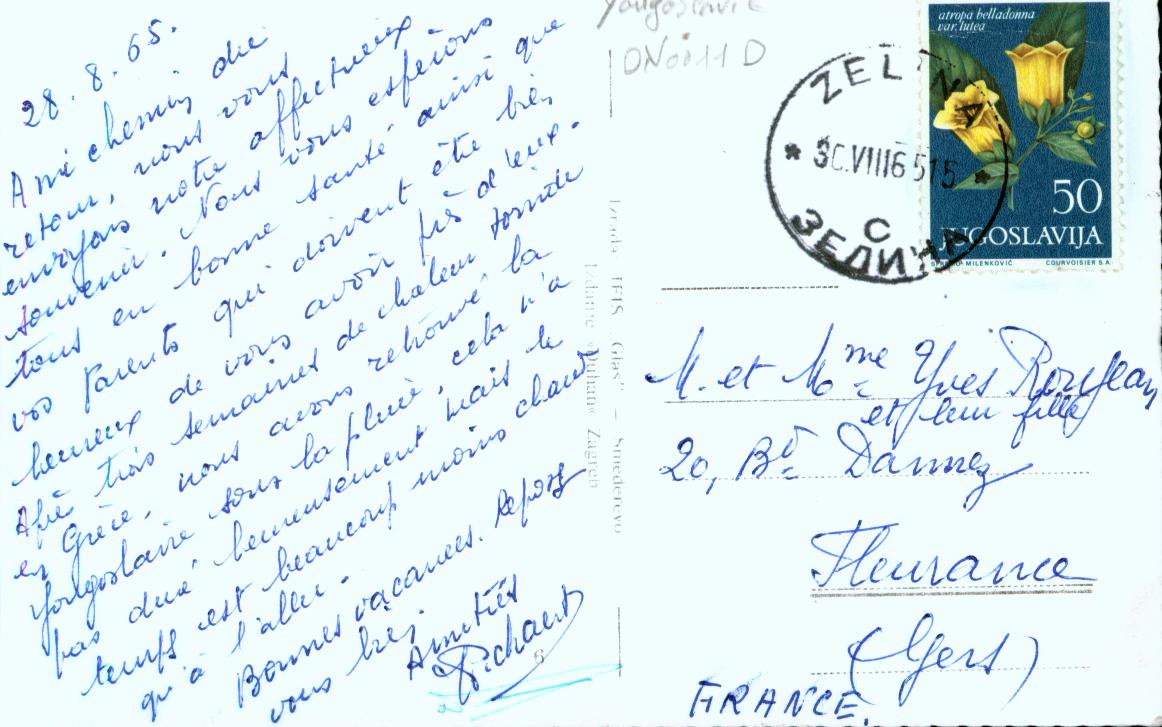 28.8.65.
A mi chemin du
retour, nous vous
envoyons notre affectueux
souvenir. Nous vous espérons
tous en bonne santé ainsi que
vos Parents qui doivent être bien
heureux de vous avoir près d'eux.
Après trois semaines de chaleur torride
en Grèce, nous avons retrouvé, la
Yougoslavie sous la pluie, cela n'a
pas duré, heureusement mais le
temps est beaucoup moins chaud
qu'à l'aller.
Bonnes vacances. Reposez
vous bien
Amitiés
Yougoslavie
ON0011 D
atropa belladonna
var. lutea
50
JUGOSLAVIJA
MILENKOVIĆ COURVOISIER S.A.
ZELINA
* 30.VIII65 15 *
C
ЗЕЛИНА
Izrada IFIS „Glas" – Smederevo
Izdanje »Putnik« Zagreb
M. et Mme Yves Roujean
et leur fille
20, Bd Dannez
Fleurance
(Gers)
FRANCE.